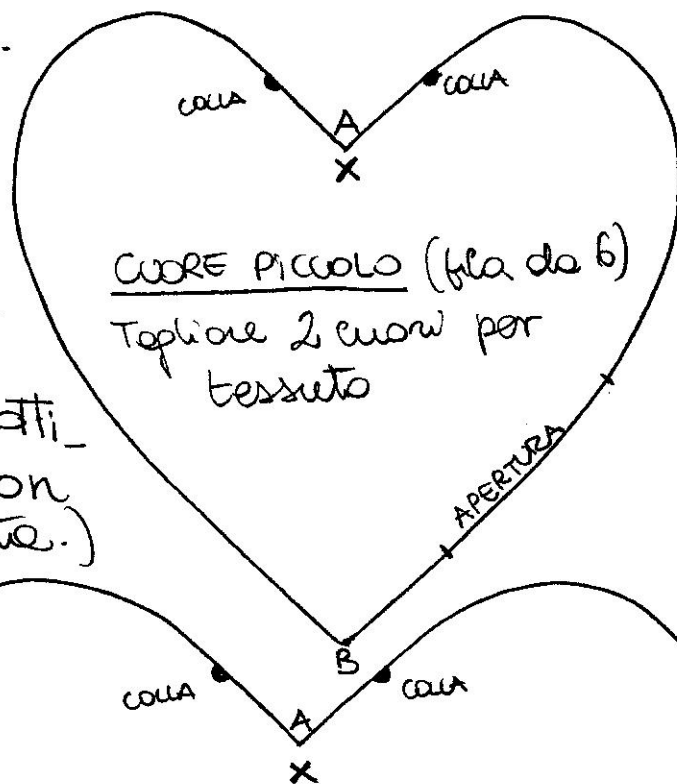 COLLA
COLLA
A
X
CUORE PICCOLO (fila da 6)
Tagliare 2 cuori per
tessuto
APERTURA
B
COLLA
COLLA
A
X